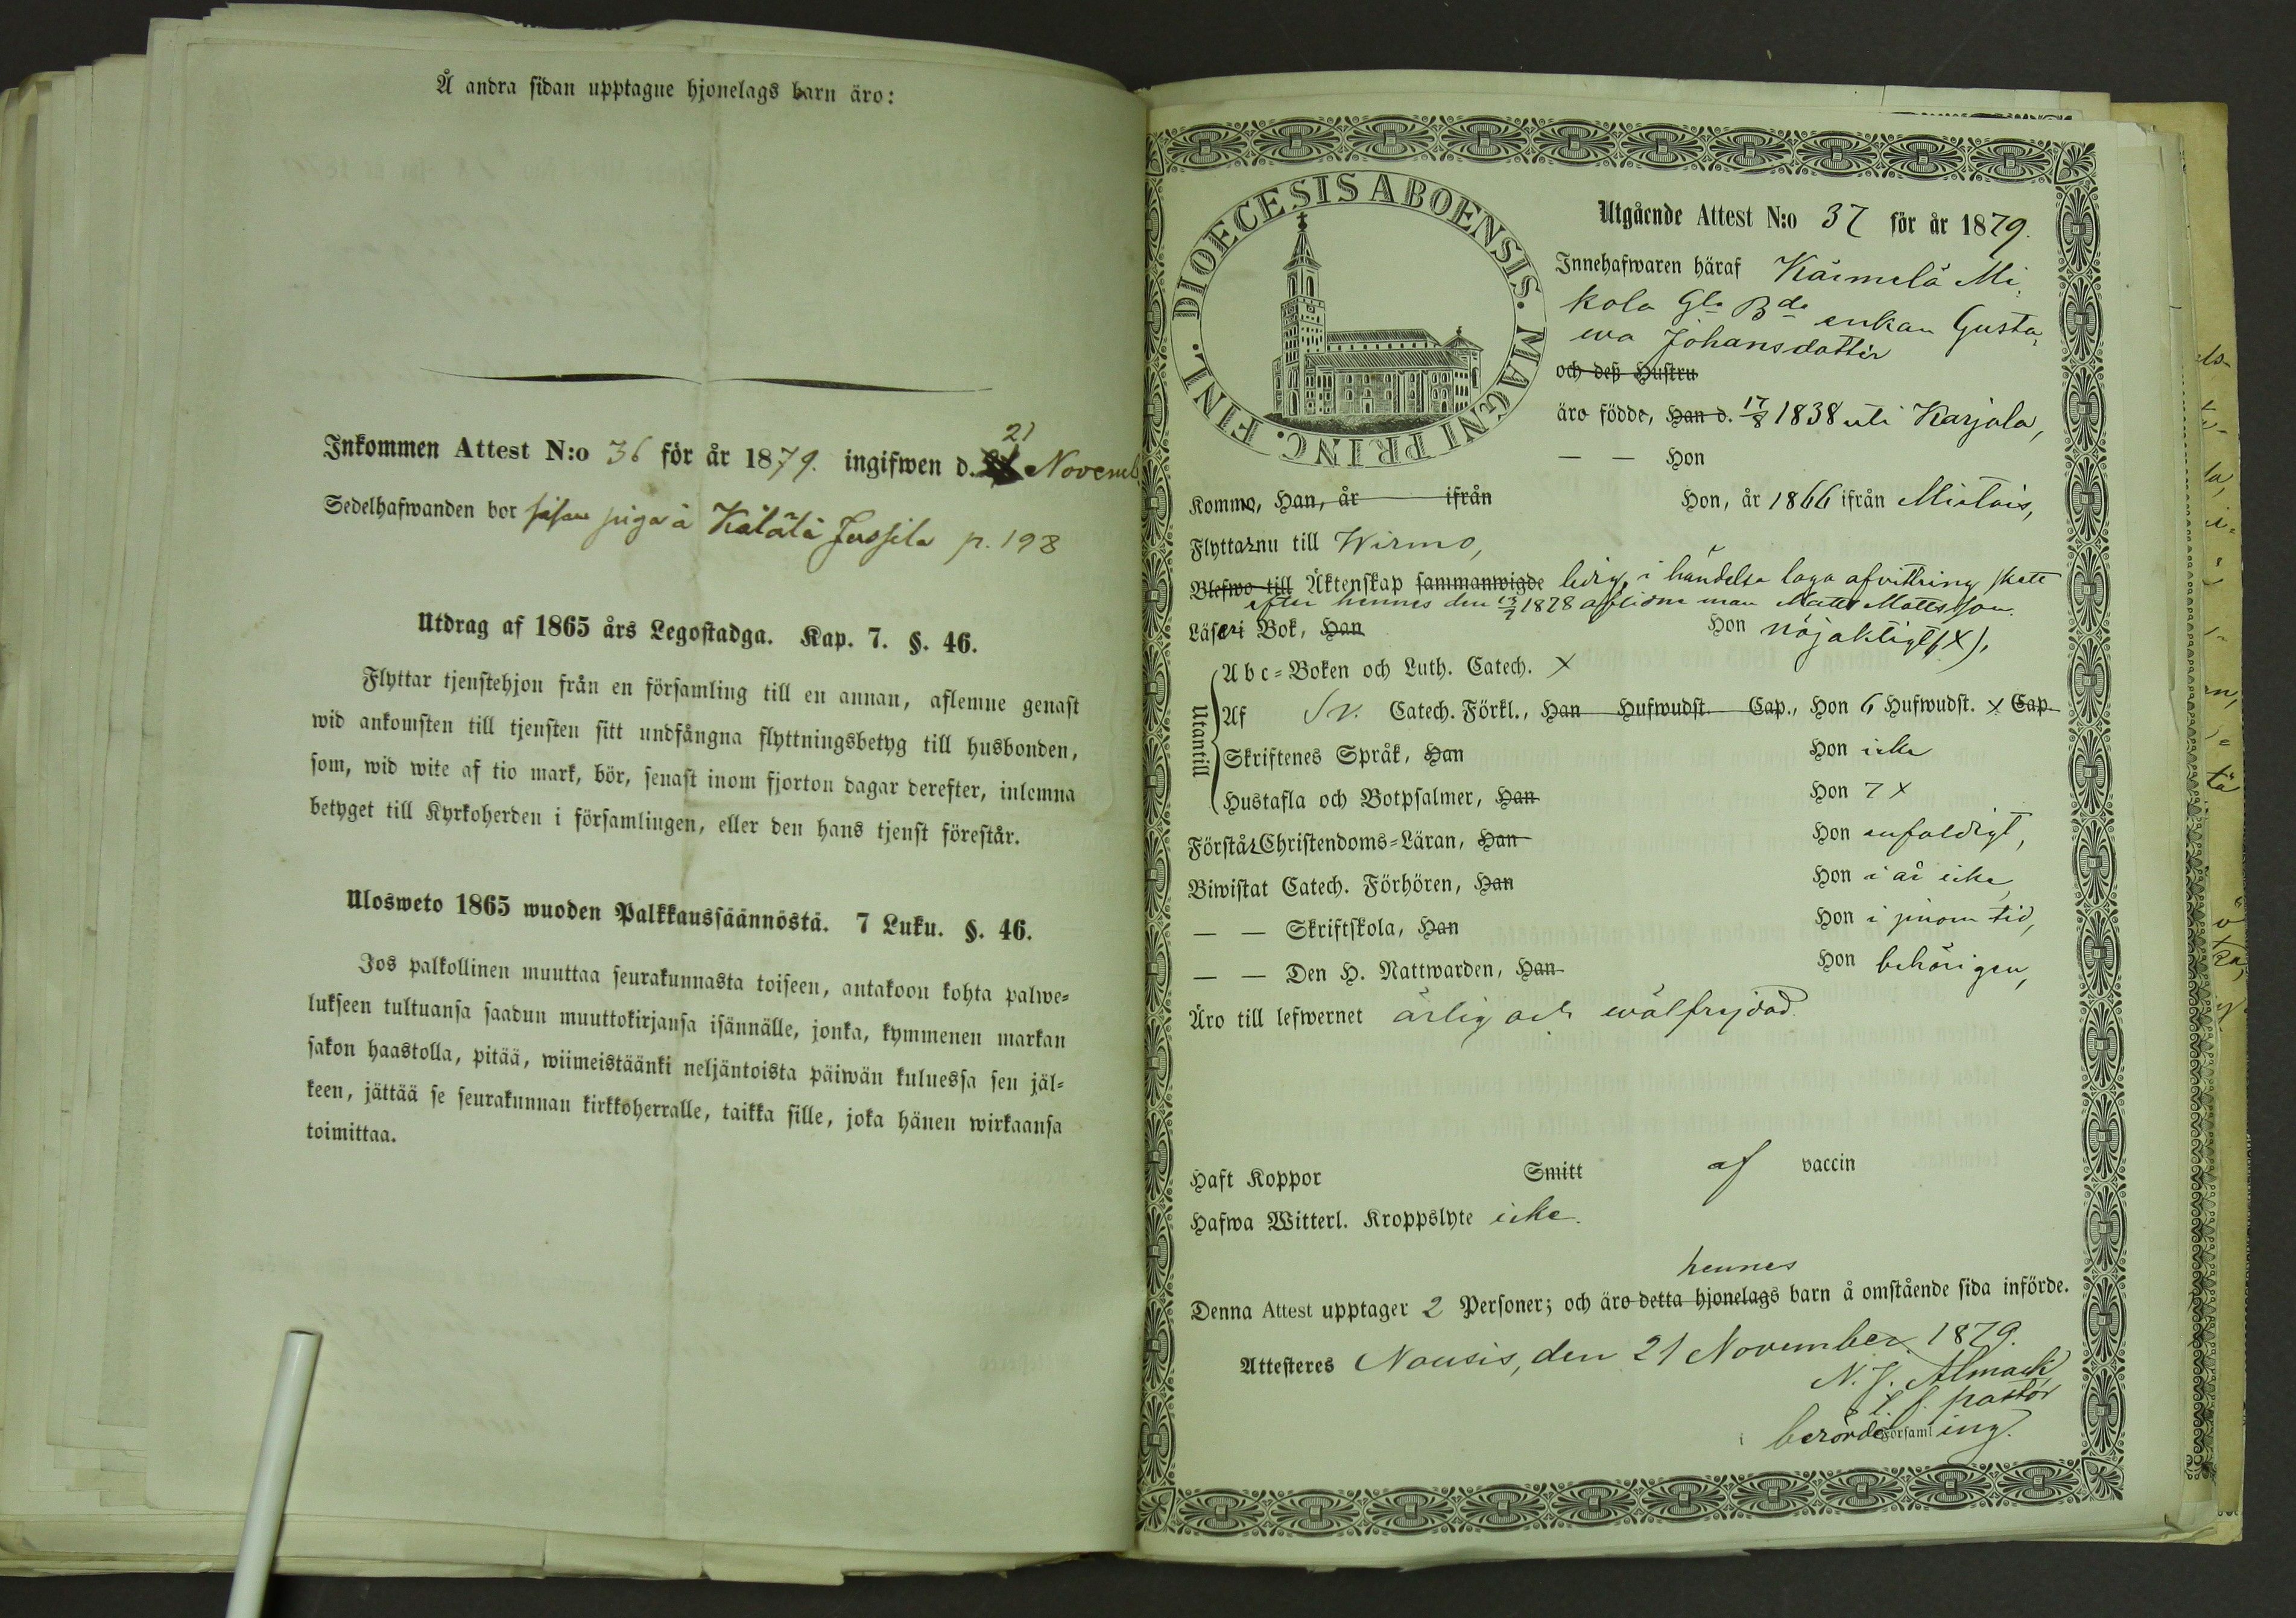 Å andra sidan upptagne hjonelags barn äro:
Inkommen Attest N:o 36 för år 1879. ingifwen d. 21 Novemb.
Sedelhafwanden bor såsom piga å Kälälä Jussila p. 198
Utdrag af 1865 års Legostadga. Kap. 7. §. 46.
Flyttar tjenstehjon från en församling till en annan, aflemne genast
wid ankomsten till tjensten sitt undfångna flyttningsbetyg till husbonden,
som, wid wite af tio mark, bör, senast inom fjorton dagar derefter, inlemna
betyget till Kyrkoherden i församlingen, eller den hans tjenst förestår.
Ulosweto 1865 wuoden Palkkaussäännöstä. 7 Luku. §. 46.
Jos palkollinen muuttaa seurakunnasta toiseen, antakoon kohta palwe-
lukseen tultuansa saadun muuttokirjansa isännälle, jonka, kymmenen markan
sakon haastolla, pitää, wiimeistäänki neljäntoista päiwän kuluessa sen jäl-
keen, jättää se seurakunnan kirkkoherralle, taikka sille, joka hänen wirkaansa
toimittaa.
DIOECESIS ABOENSIS. MAGNI PRINC. FINL.
Utgående Attest N:o 37 för år 1879.
Innehafwaren häraf Käimelä Mi
kola Gla Bde enkan Gusta
ewa Johansdotter
och deß Hustru
äro födde, Han d. 17/8 1838 uti Karjala,
— — Hon
Komme, Han, år ifrån Hon, år 1866 ifrån Mietois,
Flyttar nu till Wirmo,
Blefwo till Äktenskap sammanwigde ledig, i händelse laga afvittring skett
efter hennes den 1878 aflidne man Matts Mattsson.
Läser i Bok, Han Hon nöjaktigt (x),
Utantill
Abc-Boken och Luth. Catech. x
Af Sv. Catech. Förkl., Han Hufwudst. Cap., Hon 6 Hufwudst. x Cap.
Skriftenes Språk, Han Hon icke
Hustafla och Botpsalmer, Han Hon 7 x
Förstår Christendoms-Läran, Han Hon enfaldigt,
Biwistat Catech. Förhören, Han Hon i år icke,
— — Skriftskola, Han Hon i sinom tid,
— — Den H. Nattwarden, Han Hon behörigen,
Äro till lefwernet ärlig och wälfrejdad.
Haft Koppor Smitt af vaccin
Hafwa Witterl. Kroppslyte icke.
hennes
Denna Attest upptager 2 Personer; och äro detta hjonelags barn å omstående sida införde.
Attesteres Nousis, den 21 November 1879.
N. J. Almark
t. f. pastor
i berörde Församling.